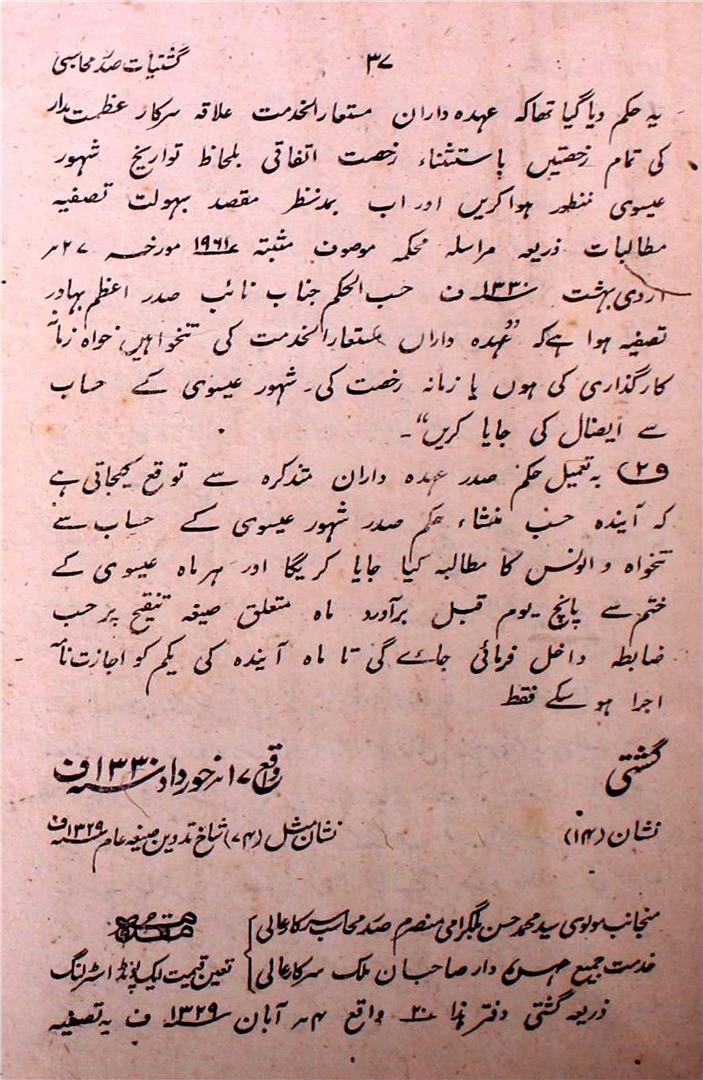 گشتیات صدر محاسبی
۳۷
یہ حکم دیا گیا تھا کہ عہدہ داران مستعار الخدمت علاقہ سرکار عظمت مدار
کی تمام رخصتیں باستثناء رخصت اتفاقی بلحاظ تواریخ شہور
عیسوی منظور ہوا کریں اور اب بمدنظر مقصد بہولت تصفیہ
مطالبات ذریعہ مراسلہ محکمہ موصوف مثبتہ ۱۹۶۱ مورخہ ۲۷ ر
اردی بہشت سنہ ۱۳۳۰ ف حسب الحکم جناب نائب صدر اعظم بہادر
تصفیہ ہوا ہے کہ "عہدہ داران مستعار الخدمت کی تنخواہیں خواہ زمانہ
کارگذاری کی ہوں یا زمانہ رخصت کی۔ شہور عیسوی کے حساب
سے ایصال کی جایا کریں"۔
(۲) بہ تعمیل حکم صدر عہدہ داران متذکرہ سے توقع کیجاتی ہے
کہ آیندہ حسب منشاء حکم صدر شہور عیسوی کے حساب سے
تنخواہ و الونس کا مطالبہ کیا جایا کریگا اور ہر ماہ عیسوی کے
ختم سے پانچ یوم قبل برآورد ماہ متعلق صیغہ تنقیح پر حسب
ضابطہ داخل فرمائی جائے گی تا ماہ آیندہ کی یکم کو اجازت نامہ
اجرا ہو سکے فقط
گشتی
واقع ۱۷ ر خورداد سنہ ۱۳۳۰ ف
نشان (۱۴)
نشان مثل (۷۴) شاخ تدوین صیغہ عام سنہ ۱۳۲۹ ف
منجانب مولوی سید محمد حسن بلگرامی منصرم صدر محاسب سرکار عالی
مقدمہ
خدمت جمیع عہدہ دار صاحبان ملک سرکار عالی
تعین قیمت ایک پونڈ اسٹرلنگ
ذریعہ گشتی دفتر ہذا ۲۰ واقع ۴ ر آبان سنہ ۱۳۲۹ ف یہ تصفیہ